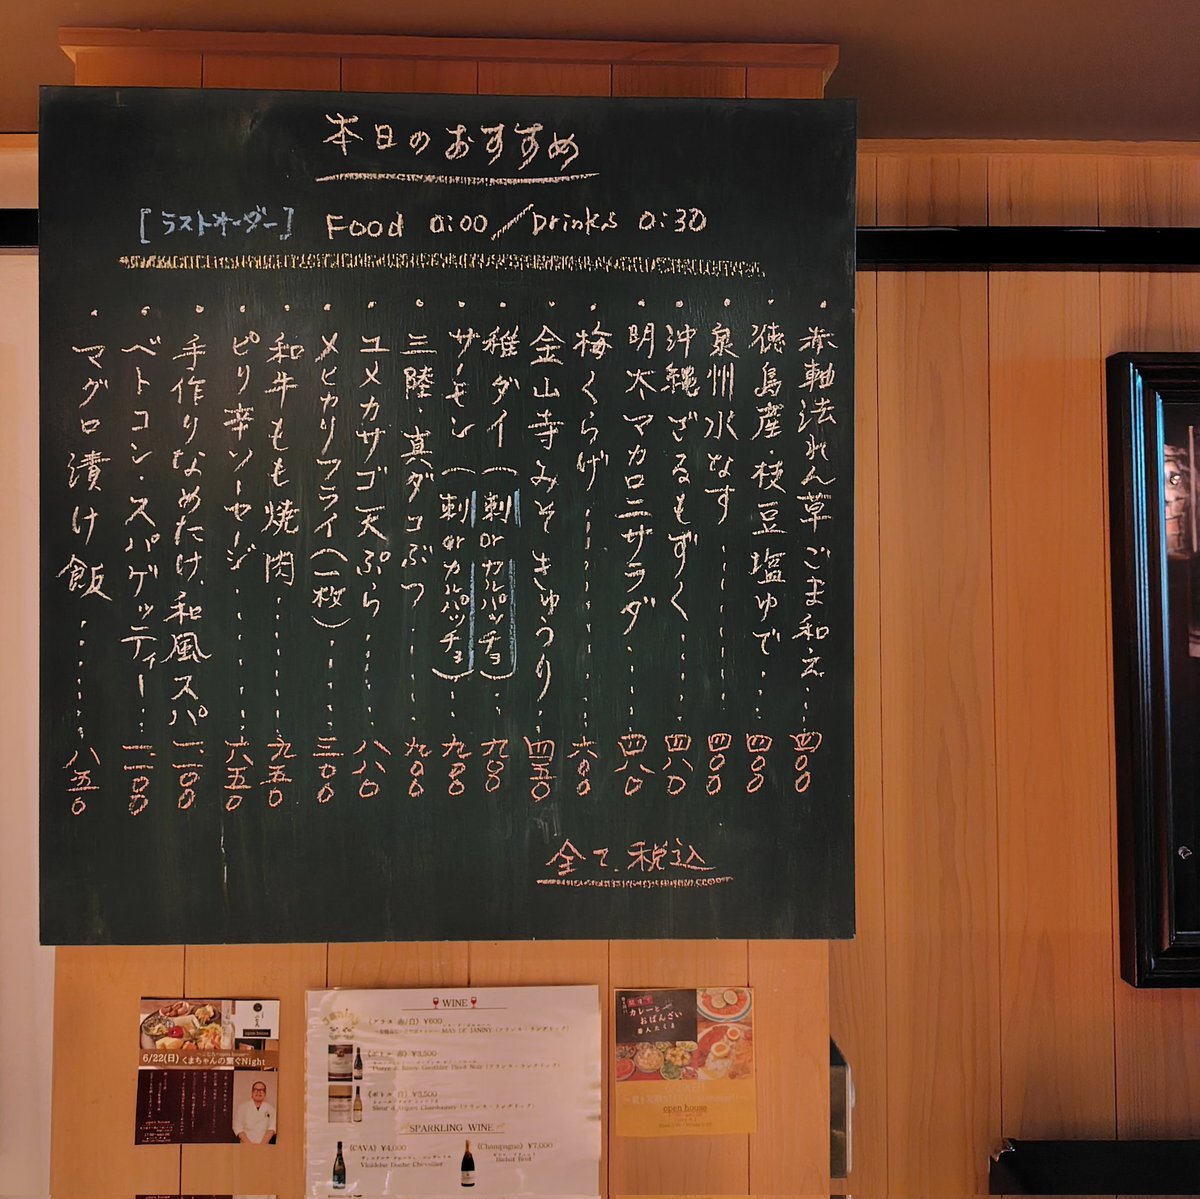 本日のおすすめ
[ラストオーダー] Food 0:00/Drinks 0:30
・赤軸法れん草ごま和え・・・四〇〇
・徳島産・枝豆塩ゆで・・・四〇〇
・泉州水なす・・・四〇〇
・沖縄ざるもずく・・・四八〇
・明太マカロニサラダ・・・四八〇
・梅くらげ・・・六〇〇
・金山寺みそきゅうり・・・四五〇
・稚ダイ(刺orカルパッチョ)・・・九〇〇
・サーモン(刺orカルパッチョ)・・・九〇〇
・三陸・真ダコぶつ・・・九〇〇
・ユメカサゴ天ぷら・・・八八〇
・メヒカリフライ(一枚)・・・三〇〇
・和牛もも焼肉・・・九五〇
・ピリ辛ソーセージ・・・六五〇
・手作りなめたけ、和風スパ・・・一、一〇〇
・ベトコン・スパゲッティー・・・一、一〇〇
・マグロ漬け飯・・・八五〇
全て税込
6/22(日)くまちゃんの繋ぐNight
open house
WINE
(グラス 赤/白) ¥600
(ボトル 赤) ¥3,500
(ボトル 白) ¥3,500
SPARKLING WINE
(CAVA) ¥4,000
(Champagne) ¥7,000
カレーと
おばんざい
open house